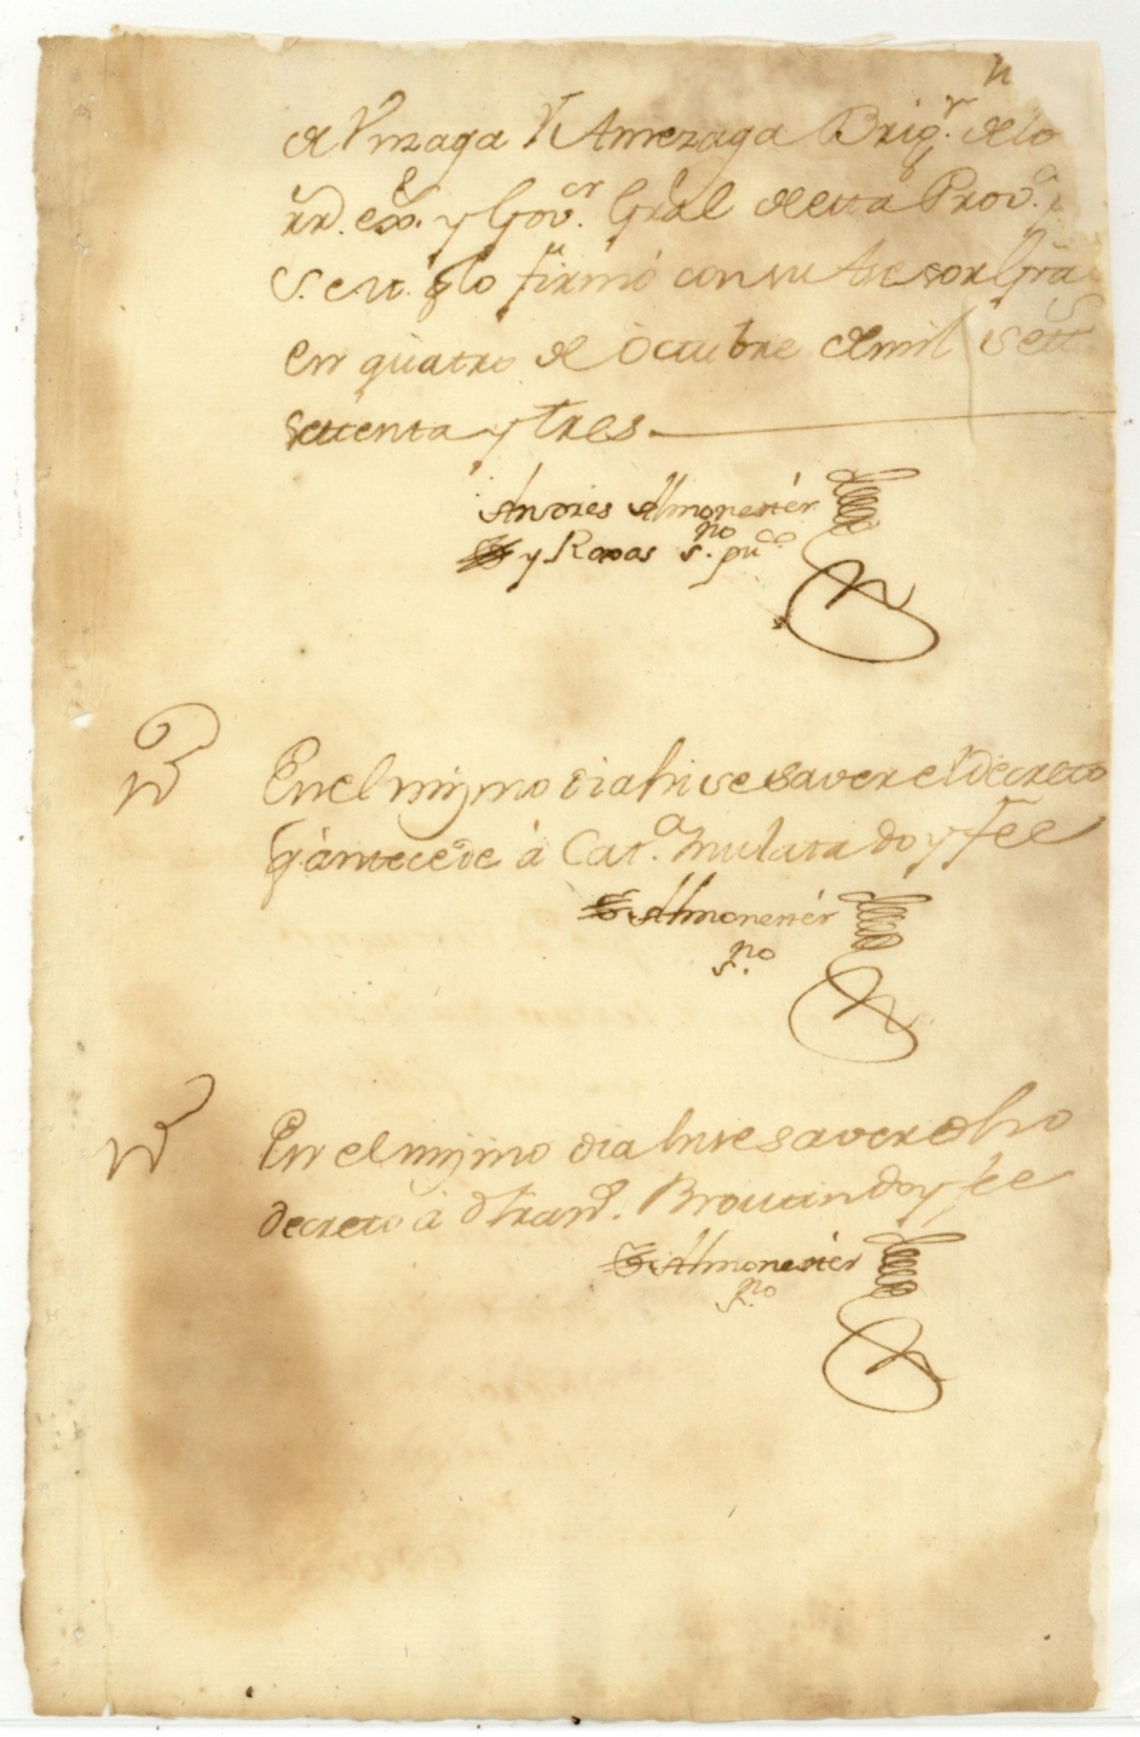 de Vnzaga Y Amezaga Brig.r delo
rr.d ex.s y Gov.or Gral deesta Prov.a
S. en.a q lo firmó consu Asesor Gral
en quatro de Octubre demil Sett
settenta y tres.
Andres Almonester
y Roxas s.no pu.co
Enel mismo dia hise saver el decreto
q antecede à Cat.a Mulata doy fee
Almonester
s.no
En el mismo dia hise saver dho
decreto à d Fran.co Broutin doy fee
Almonester
s.no